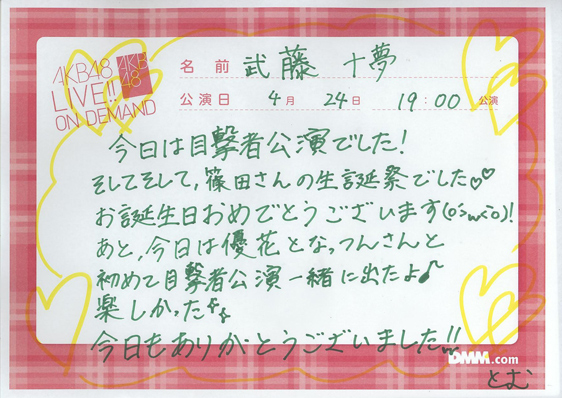 AKB48
LIVE!!
ON DEMAND
AKB
48
名前 武藤 十夢
公演日 4月 24日 19:00 公演
今日は目撃者公演でした!
そしてそして,篠田さんの生誕祭でした♡♡
お誕生日おめでとうございます(o>ω<o)!
あと,今日は優花となっつんさんと
初めて目撃者公演一緒に出たよ♪
楽しかった
今日もありがとうございました!!
DMM.com
とむ